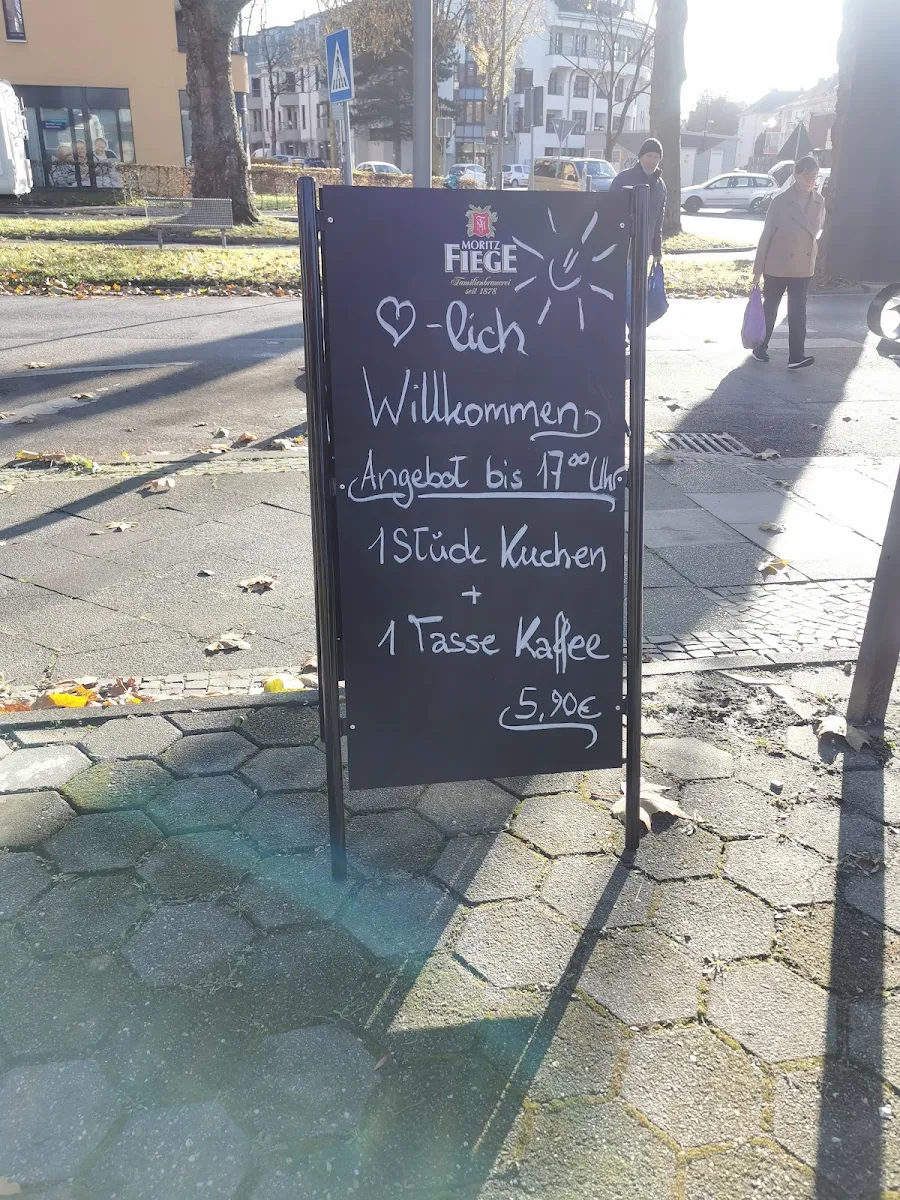 MORITZ
FIEGE
Familienbrauerei
seit 1878
♡-lich
Willkommen
Angebot bis 17⁰⁰ Uhr
1 Stück Kuchen
+
1 Tasse Kaffee
5,90€